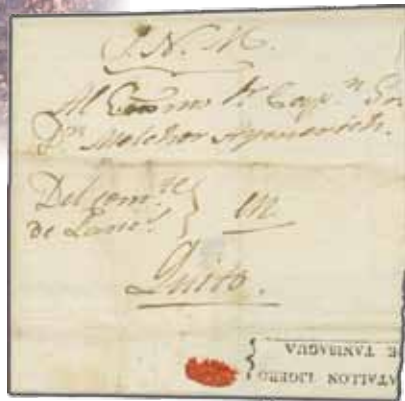 S. N. M.
Al Exmo Sr. Capn. Gr.
Dn. Melchor Aymerich.
Del comte
de Lanc.s } en
Quito.
BATALLON LIGERO
DE TANISAGUA }